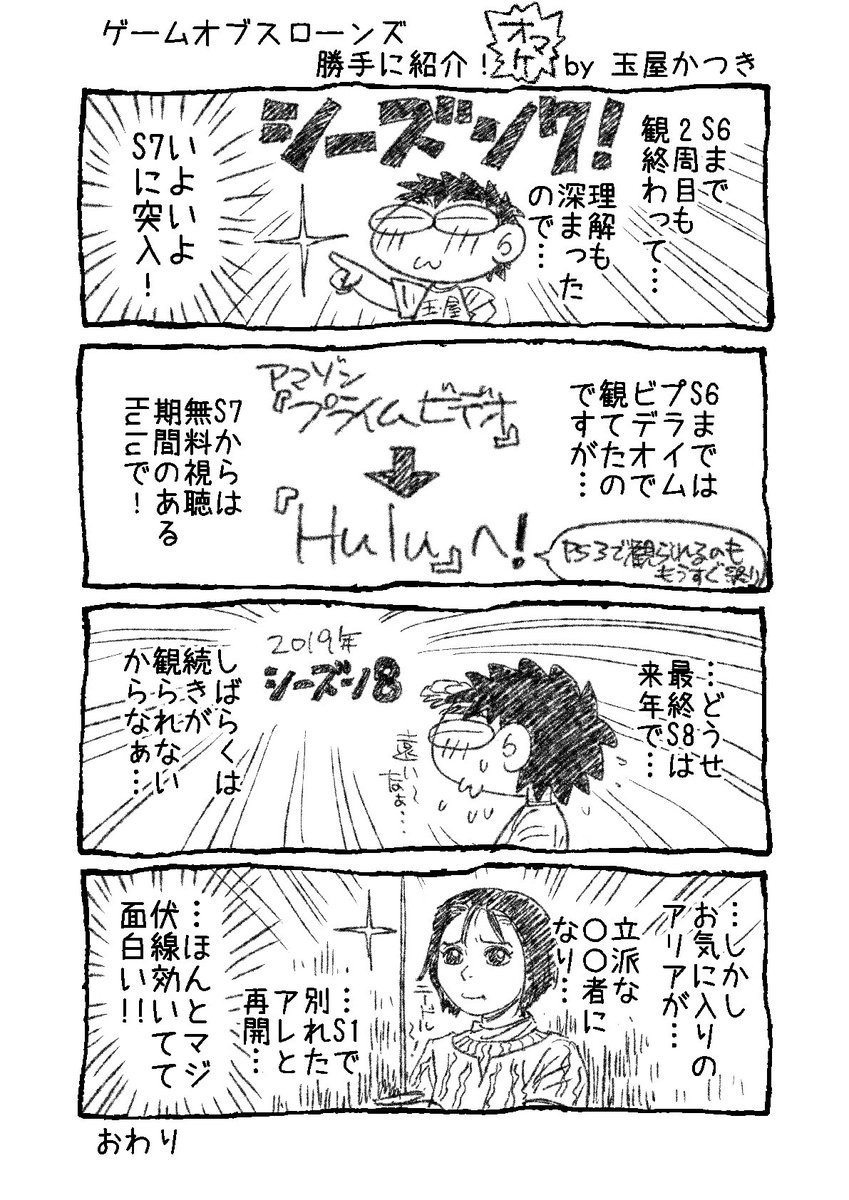 ゲームオブスローンズ
勝手に紹介！
オマケ
by 玉屋かつき
S6まで
2周目も
観終わって…
理解も
深まった
ので…
シーズン7!
玉屋
いよいよ
S7に突入！
S6までは
プライム
ビデオで
観てたの
ですが…
アマゾン
『プライムビデオ』
『Hulu』へ!
PS3で観られるのも
もうすぐ終り
S7からは
無料視聴
期間のある
Huluで！
…どうせ
最終S8は
来年で…
2019年
シーズン8
遠い〜
なぁ…
しばらくは
続きが
観られない
からなぁ…
…しかし
お気に入りの
アリアが…
立派な
〇〇者に
なり…
…S1で
別れた
アレと
再開…
…ほんとマジ
伏線効いてて
面白い!!
おわり